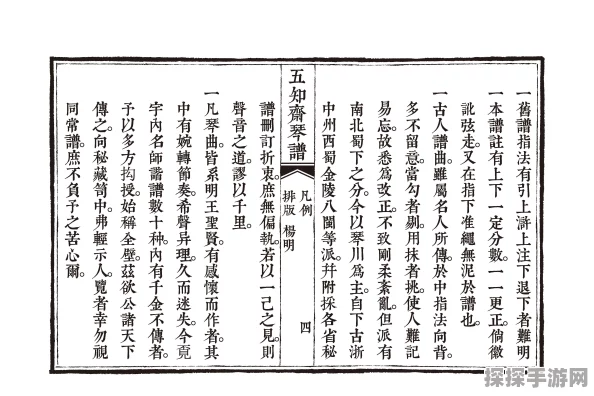 一舊譜指法有引上滸上注下退下者難明
一本譜註有上下一定分數。一一更正。倘徽
訛弦走。又在指下准繩無泥於譜也。
一古人譜曲。雖屬名人所傳。於中指法向背。
多不留意。當勾者剔。用抹者挑。使人難記
易忘。故悉爲改正。不致剛柔紊亂。但派有
南北蜀下之分。今以琴川爲主。自下古浙
中州西蜀金陵八閩等派。幷附採各省秘
五知齋琴譜
凡例
排版 楊明
四
譜刪訂折衷。庶無偏執。若以一己之見。則
聲音之道。謬以千里。
一凡琴曲。皆系明王聖賢。有感懷而作者。其
中有婉轉節奏。希聲异理。久而迷失。今竟
宇內名師。諧譜數十种。內有千金不傳者。
予以多方抅授。始稱全壁。茲欲公諸天下
傳之。向秘藏笥中。弗輕示人。覽者幸勿視
同常譜。庶不負予之苦心爾。
探探手游网